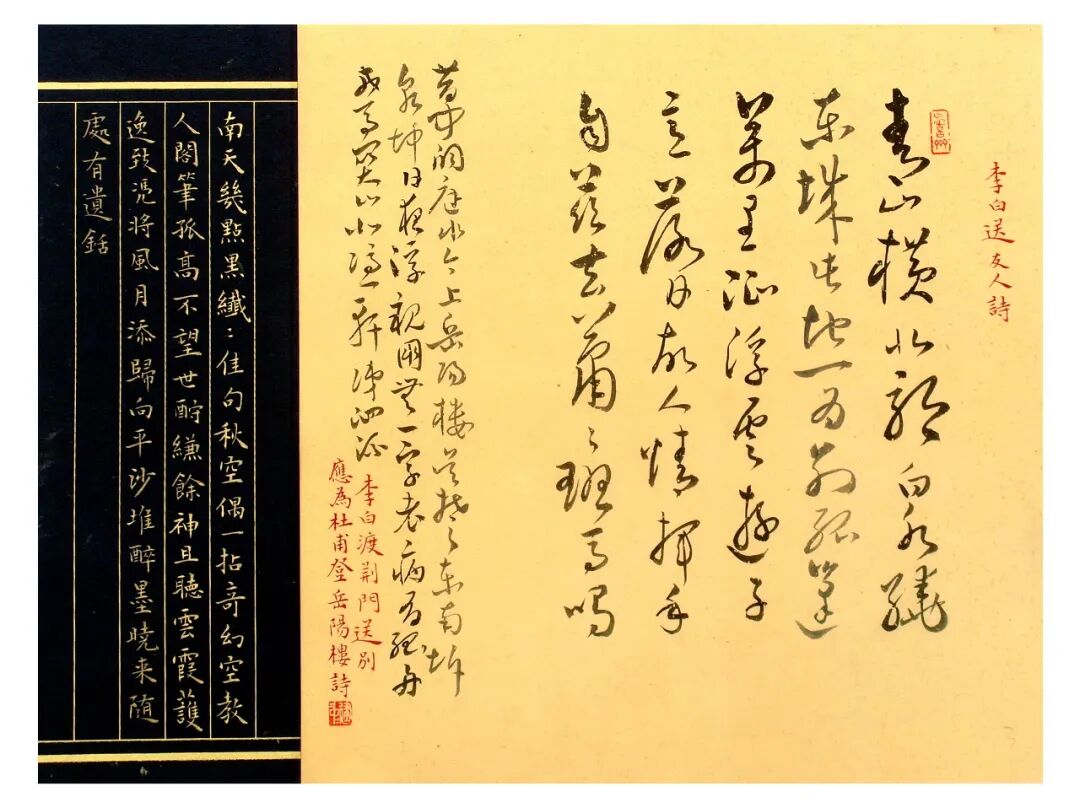 李白送友人詩
青山橫北郭白水繞
東城此地一為別孤蓬
萬里征浮雲遊子
意落日故人情揮手
自茲去蕭々班馬鳴
昔聞洞庭水今上岳陽樓吳楚東南坼
乾坤日夜浮親朋無一字老病有孤舟
戎馬關山北憑軒涕泗流
李白渡荆門送別
應為杜甫登岳陽樓詩
南天幾點黑纖:佳句秋空偶一拈奇幻空教
人閣筆孤高不望世酧縑餘神且聽雲霞護
逸致凭將風月添歸向平沙堆醉墨曉来随
處有遺銛